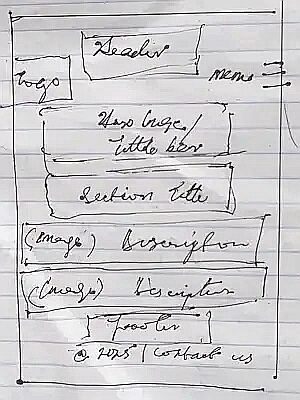 Header
Logo
menu
Hero Image/
Little box
Section title
(Image) Description
(Image) Description
Footer
@ 2025 | Contact us